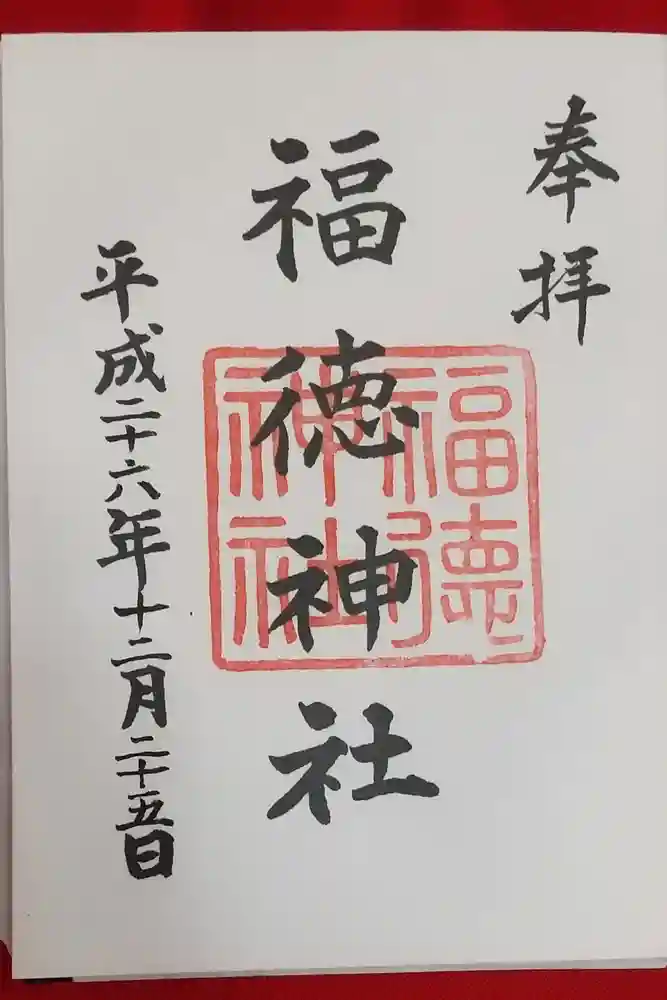 奉拝
福徳神社
平成二十六年十二月二十五日
福徳
神社